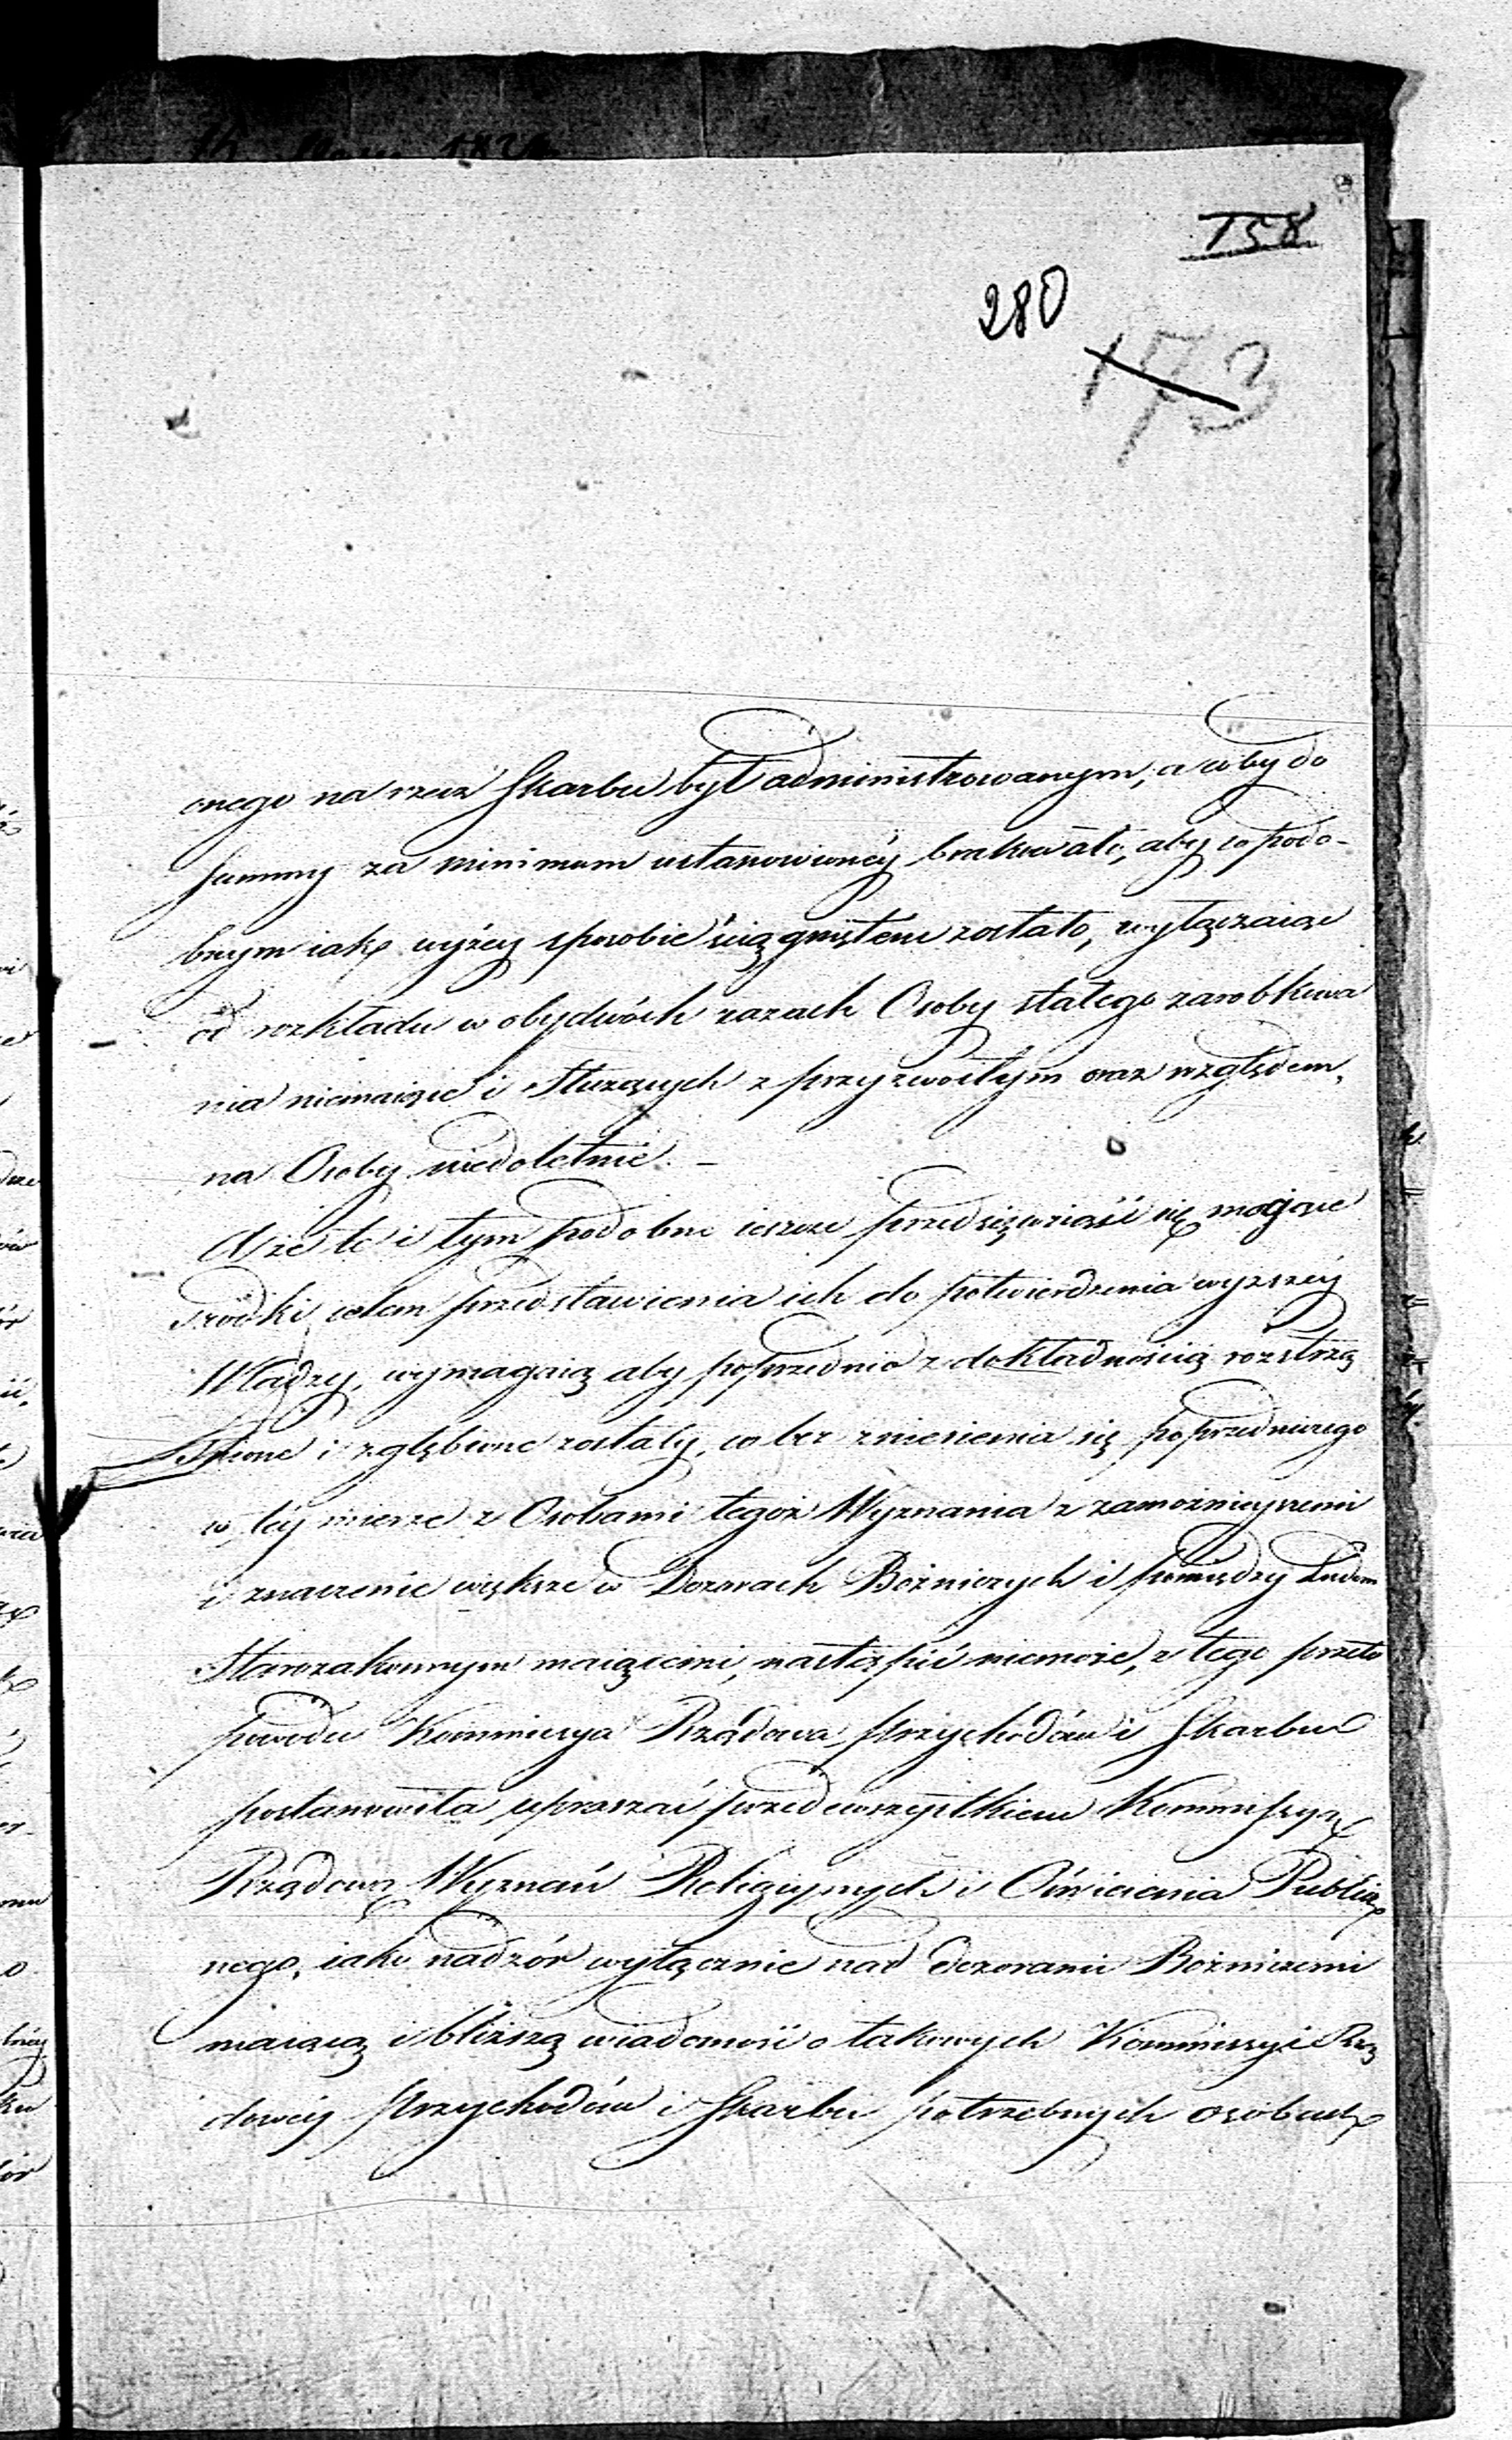 158
280
173
onego na rzecz Skarbu był administrowanym, a coby do
Summy za minimum ustanowionéy brakowało, aby w podo-
bnym iak wyżey sposobie ściągniętem zostało, wyłączaiąc
od rozkładu w obydwóch razach Osoby stałego zarobkowa
nia niemaiące i służących z przyzwoitym oraz względem
na Osoby niedoletnie. –
A że te i tym podobne ieszcze przedsięwziąść się mogące
środki celem przedstawienia ich do potwierdzenia wyższéy
Władzy, wymagaią aby poprzednio z dokładnością roztrzą
śnione i zgłębione zostały, co bez zniesienia się poprzedniczego
w téy mierze z Osobami tegoż Wyznania z zamożnieyszemi
i znaczenie większe w Dozorach Bożniczych i pomiędzy Ludem
Starozakonnym maiącemi, nastąpić niemoże, z tego przeto
powodu Kommissya Rządowa Przychodów i Skarbu
postanowiła upraszać przedewszystkiem Kommissyą
Rządową Wyznań Religiynych i Oświecenia Publicz
nego, iako nadzór wyłącznie nad dozorami Bożniczemi
maiącą i bliższą wiadomość o takowych Kommissyi Rzą
dowéy Przychodów i Skarbu potrzebnych osobach